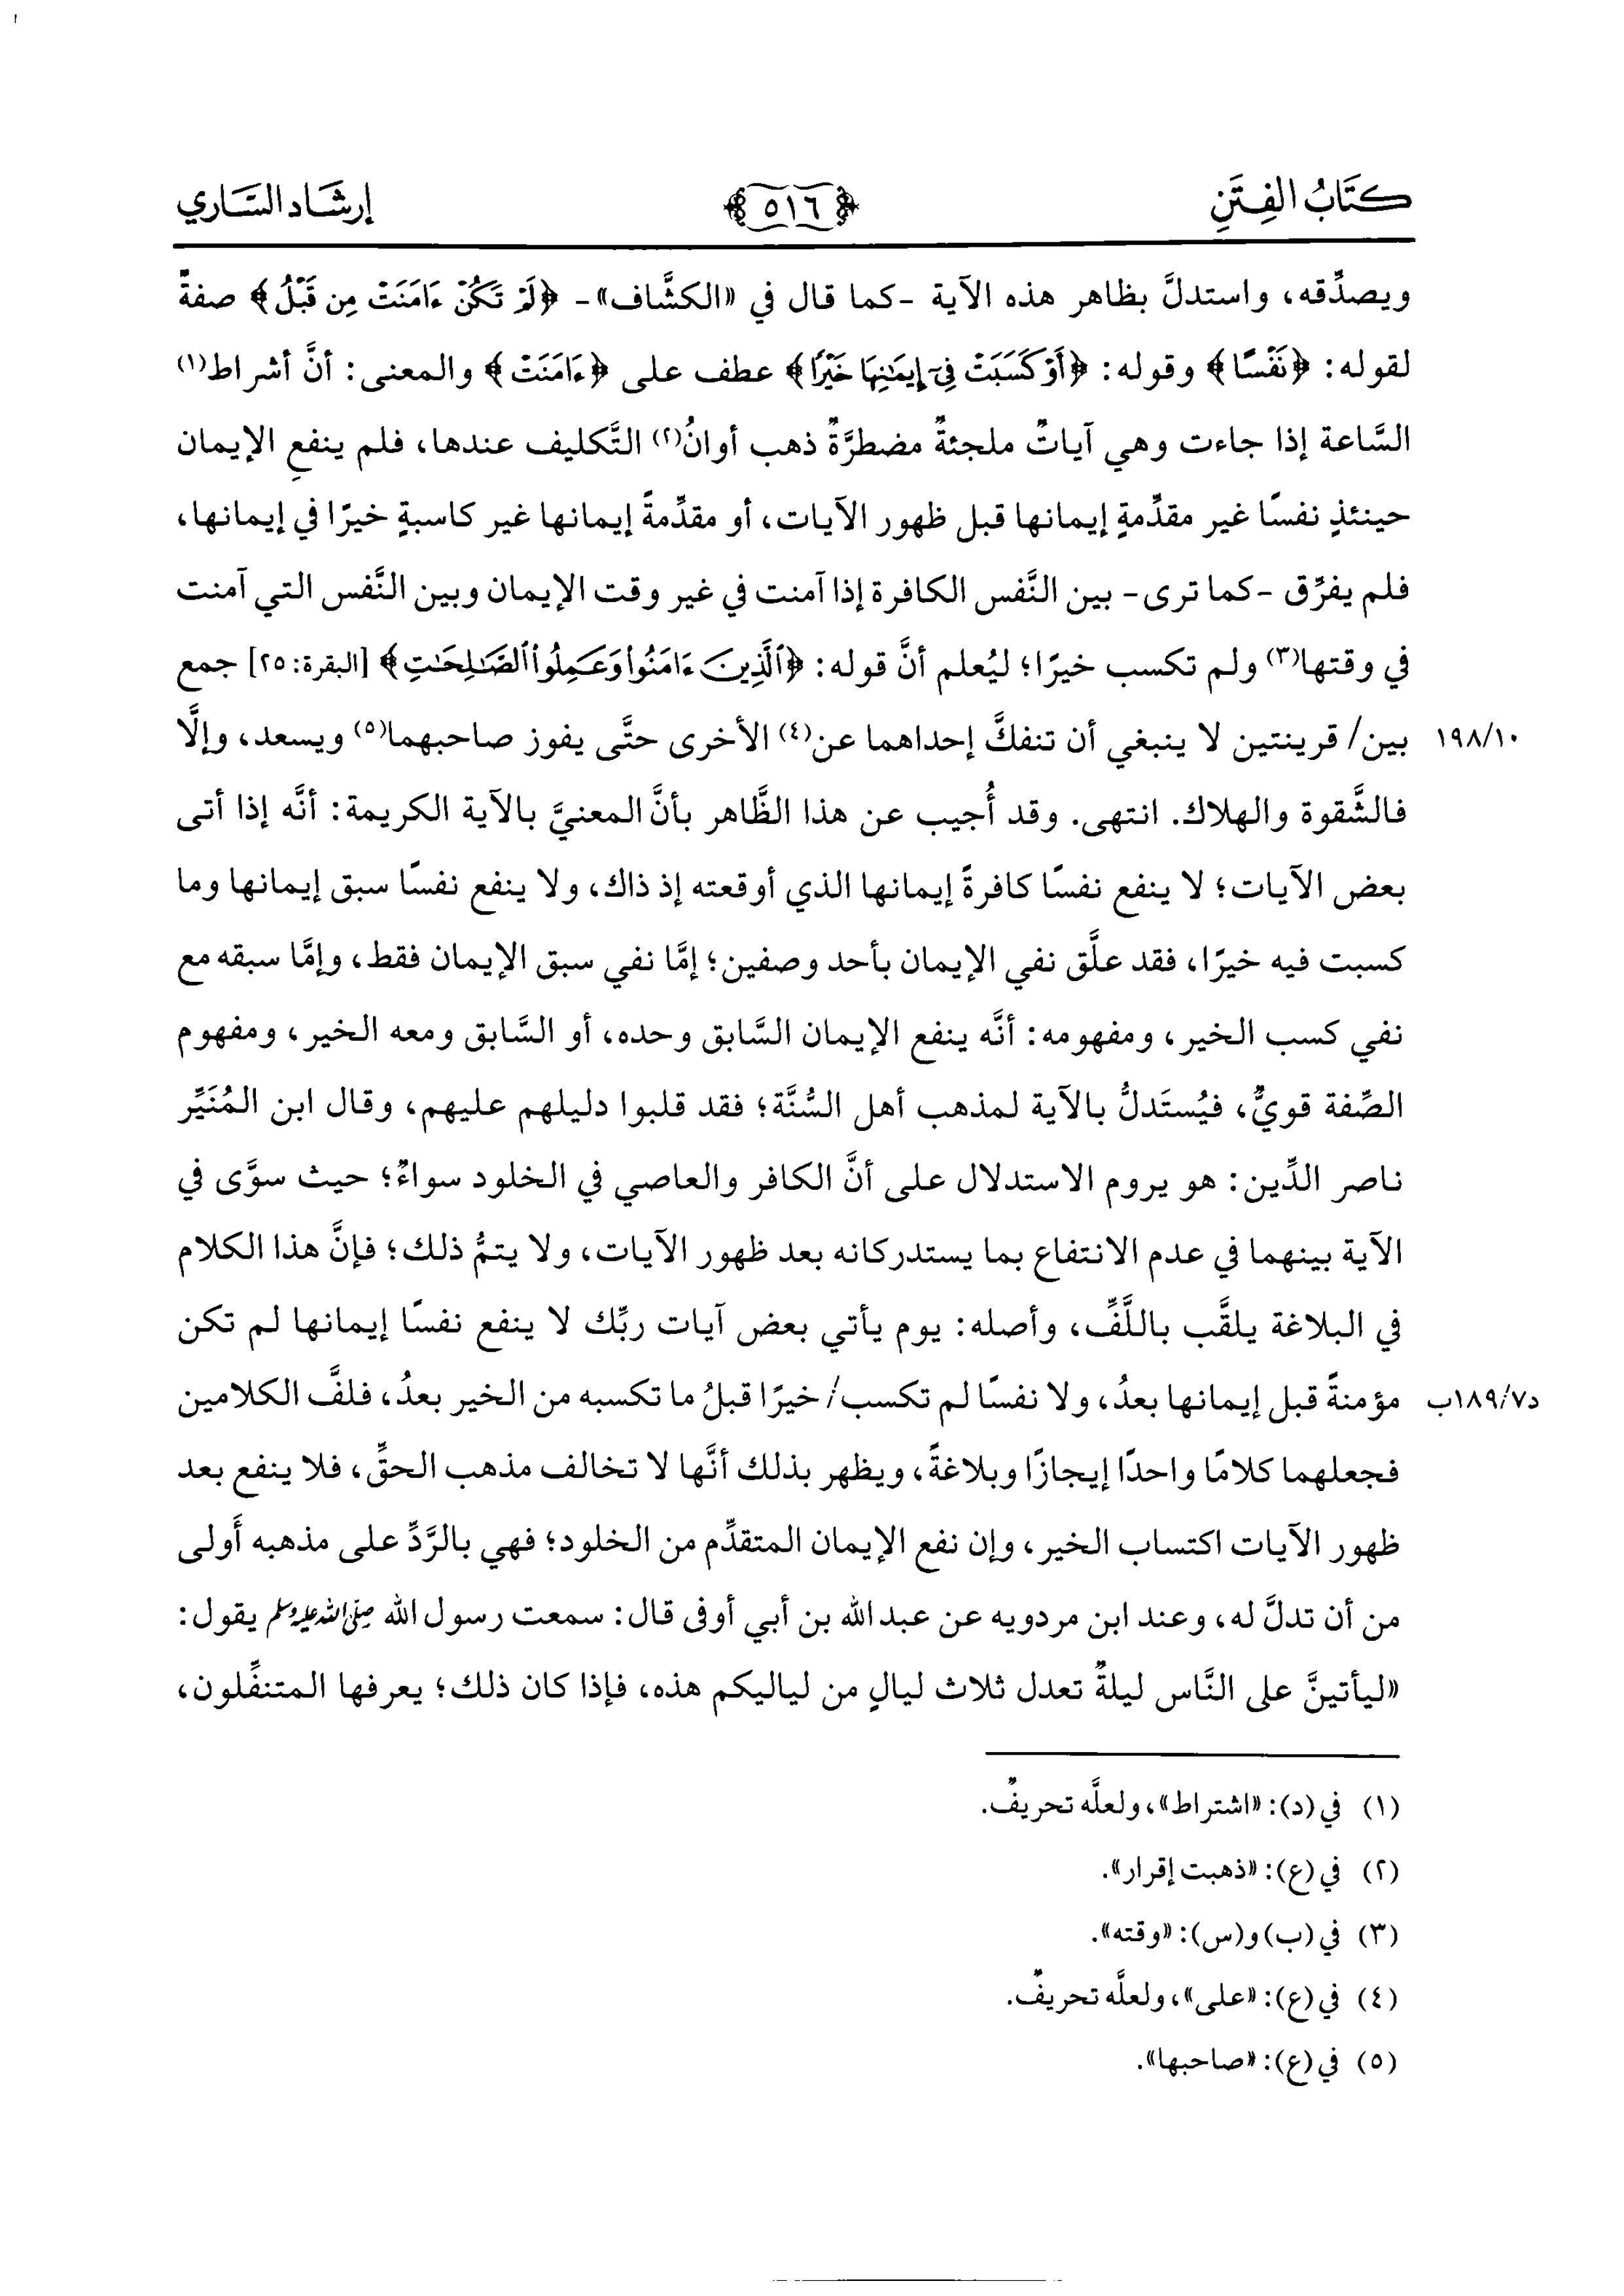 كتاب الفِتَنِ
﴿٥١٦﴾
إرشاد السَّاري
ويصدِّقه، واستدلَّ بظاهر هذه الآية -كما قال في «الكشَّاف»- ﴿لَمْ تَكُنْ ءَامَنَتْ مِن قَبْلُ﴾ صفةً
لقوله: ﴿نَفْسًا﴾ وقوله: ﴿أَوْ كَسَبَتْ فِىٓ إِيمَٰنِهَا خَيْرًا﴾ عطف على ﴿ءَامَنَتْ﴾ والمعنى: أنَّ أشراط(١)
السَّاعة إذا جاءت وهي آياتٌ ملجئةٌ مضطرَّةٌ ذهب أوانُ(٢) التَّكليف عندها، فلم ينفعِ الإيمان
حينئذٍ نفسًا غير مقدِّمةٍ إيمانها قبل ظهور الآيات، أو مقدِّمةً إيمانها غير كاسبةٍ خيرًا في إيمانها،
فلم يفرِّق -كما ترى- بين النَّفس الكافرة إذا آمنت في غير وقت الإيمان وبين النَّفس التي آمنت
في وقتها(٣) ولم تكسب خيرًا؛ ليُعلم أنَّ قوله: ﴿ٱلَّذِينَ ءَامَنُوا۟ وَعَمِلُوا۟ ٱلصَّٰلِحَٰتِ﴾ [البقرة: ٢٥] جمع
بين/ قرينتين لا ينبغي أن تنفكَّ إحداهما عن(٤) الأخرى حتَّى يفوز صاحبهما(٥) ويسعد، وإلَّا ١٩٨/١٠
فالشَّقوة والهلاك. انتهى. وقد أُجيب عن هذا الظَّاهر بأنَّ المعنيَّ بالآية الكريمة: أنَّه إذا أتى
بعض الآيات؛ لا ينفع نفسًا كافرةً إيمانها الذي أوقعته إذ ذاك، ولا ينفع نفسًا سبق إيمانها وما
كسبت فيه خيرًا، فقد علَّق نفي الإيمان بأحد وصفين؛ إمَّا نفي سبق الإيمان فقط، وإمَّا سبقه مع
نفي كسب الخير، ومفهومه: أنَّه ينفع الإيمان السَّابق وحده، أو السَّابق ومعه الخير، ومفهوم
الصِّفة قويٌّ، فيُستَدلُّ بالآية لمذهب أهل السُّنَّة؛ فقد قلبوا دليلهم عليهم، وقال ابن المُنَيِّر
ناصر الدِّين: هو يروم الاستدلال على أنَّ الكافر والعاصي في الخلود سواءٌ؛ حيث سوَّى في
الآية بينهما في عدم الانتفاع بما يستدركانه بعد ظهور الآيات، ولا يتمُّ ذلك؛ فإنَّ هذا الكلام
في البلاغة يلقَّب باللَّفِّ، وأصله: يوم يأتي بعض آيات ربِّك لا ينفع نفسًا إيمانها لم تكن
مؤمنةً قبل إيمانها بعدُ، ولا نفسًا لم تكسب/ خيرًا قبلُ ما تكسبه من الخير بعدُ، فلفَّ الكلامين د١٨٩/٧ب
فجعلهما كلامًا واحدًا إيجازًا وبلاغةً، ويظهر بذلك أنَّها لا تخالف مذهب الحقِّ، فلا ينفع بعد
ظهور الآيات اكتساب الخير، وإن نفع الإيمان المتقدِّم من الخلود؛ فهي بالرَّدِّ على مذهبه أَولى
من أن تدلَّ له، وعند ابن مردويه عن عبد الله بن أبي أوفى قال: سمعت رسول الله صلى الله عليه وسلم يقول:
«ليأتينَّ على النَّاس ليلةٌ تعدل ثلاث ليالٍ من لياليكم هذه، فإذا كان ذلك؛ يعرفها المتنفِّلون،
(١) في (د): «اشتراط»، ولعلَّه تحريفٌ.
(٢) في (ع): «ذهبت إقرار».
(٣) في (ب) و(س): «وقته».
(٤) في (ع): «على»، ولعلَّه تحريفٌ.
(٥) في (ع): «صاحبها».